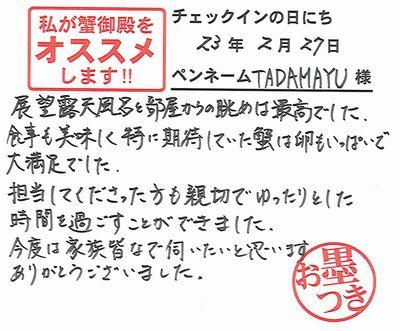 私が蟹御殿を
オススメ
します!!
チェックインの日にち
23年2月27日
ペンネームTADAMAYU様
展望露天風呂と部屋からの眺めは最高でした.
食事も美味しく特に期待していた蟹は卵もいっぱいで
大満足でした.
担当してくださった方も親切でゆったりとした
時間を過ごすことができました.
今度は家族皆なで伺いたいと思います
ありがとうございました.
お墨つき